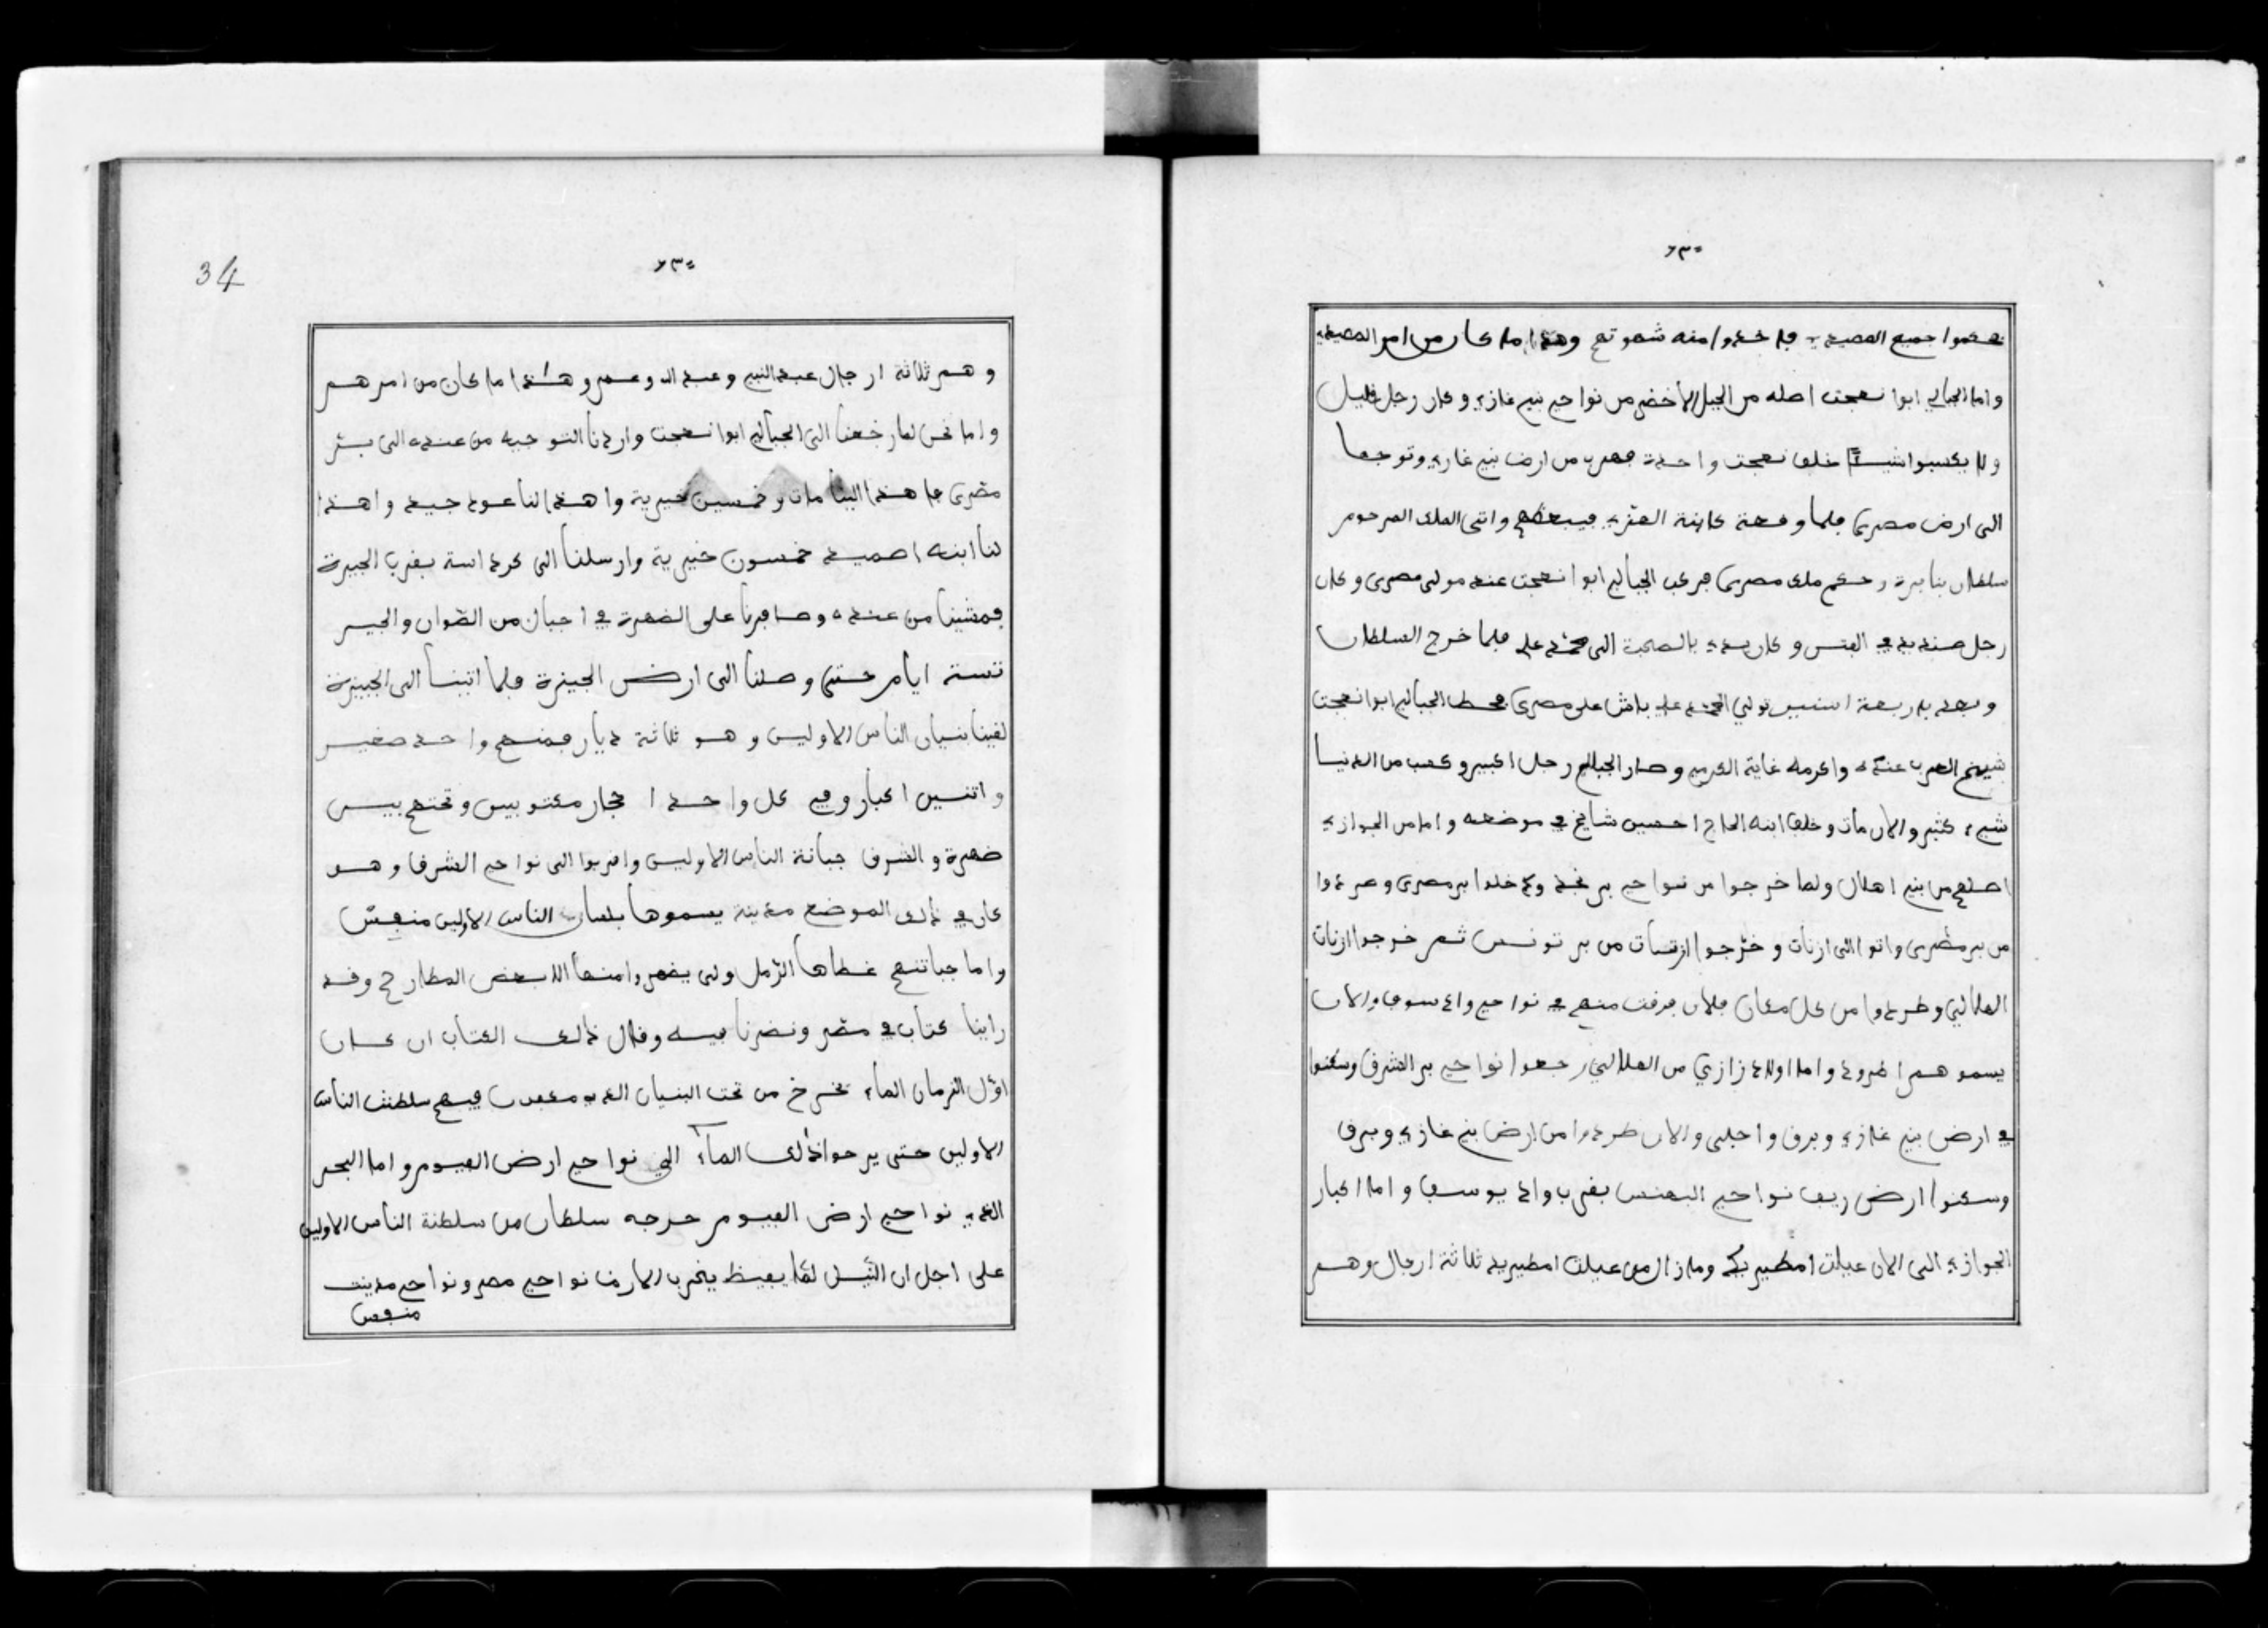 ٦٣٠
نعموا جميع القصيدة فاخدوا منه شهوتهم وهذا ما كان من امر القصيدة
واما الجبالي ابوا نعجت اصله من الجبل الاخضر من نواحي بنيي غازي وكان رجل قليل
ولا يكسبوا شيئا خلف نعجت واحدة فهرب من ارض بنيي غازي وتوجها
الى ارض مصرى فلما وقعة كاينة الغز واتى الملك المرحوم
سلطان بنابرة وحكم ملك مصرى فركب الجبالي ابوا نعجت عند مولى مصرى وكان
رجل صنديد في الفرس وكان بالصحبة الى محمد علي فلما خرج السلطان
وبعد باربعة اسنين تولي محمد علي باش على مصرى فحط الجبالي ابوا نعجت
شيخ العرب عنده واكرمه غاية الكرم وصار الجبالي رجل اكبير وكسب من الدنيا
شيء كثير والان مات وخلف ابنه الحاج احسين شايخ في موضعه واما من الجوازي
اصلهم من بنيي اهلال ولما خرجوا من نواحي بر نجد وادخلوا بر مصرى وطردوا
من بر مصرى واتوا الى ازنات وخرجوا ازنات من بر تونس ثم خرجوا ازنات
الهلالي وطردوا من كل مكان فلان فرقت منهم في نواحي واد سوف والان
يسموهم اطرود واما اولاد زازي من الهلالي رجعوا نواحي بر الشرق وسكنوا
في ارض بنيي غازي وبرق واجلى والان طردوا من ارض بنيي غازي وبرق
وسكنوا ارض ريف نواحي البهنس بقرب واد يوسف واما اكبار
الجوازي الى الان عيلت امطيريد ومازال من عيلت امطيريد ثلاثة ارجال وهم
٦٣٠
34
وهم ثلاثة ارجال عبد النبيي وعبد الله وعمر وهذا ما كان من امرهم
واما نحن لما رجعنا الى الجبالي ابوا نعجت واردنا التوجيه من عنده الى بر
مصرى فاهدا الينا مات وخمسين خيرية واهدا لنا عود جيد واهدا
لنا ابنه احميد خمسون خيرية وارسلنا الى كرداسة بقرب الجيزة
فمشينا من عنده وصافرنا على الضهرة في اجبال من الصوان والجير
تستة ايام حتى وصلنا الى ارض الجيزة فلما اتينا الى الجيزة
لقينا بنيان الناس الاولين وهو ثلاثة ديار فمنهم واحد صغير
واتنين اكبار وفي كل واحد احجار مكتوبين وتحتهم بير
ضهرة والشرق جبانة الناس الاولين واقربوا الى نواحي الشرق وهو
كان في ذلك الموضع مدينة يسموها بلسان الناس الاولين منفيس
واما جباتنهم غطاها الرمل ولى يضهروا منها الا بعض المطارح وقد
راينا كتاب في مصر ونضرنا فيه وقال ذلك الكتاب ان كان
اول الزمان الماء تخرخ من تحت البنيان الذي معقدين فيهم سلطنت الناس
الاولين حتى يرحوا ذلك الماء الي نواحي ارض الفيوم واما البحر
الذي نواحي ارض الفيوم حرجه سلطان من سلطنة الناس الاولين
على اجل ان النيل لما يفيظ يخرب الارض نواحي مصر ونواحي مدينت
منفيس